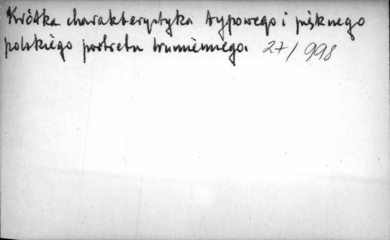 Krótka charakterystyka typowego i pięknego
polskiego portretu trumiennego. 27/998